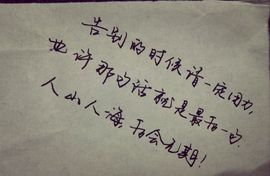 告别的时候请一定用力，
也许那句话就是最后一句，
人山人海后会无期！